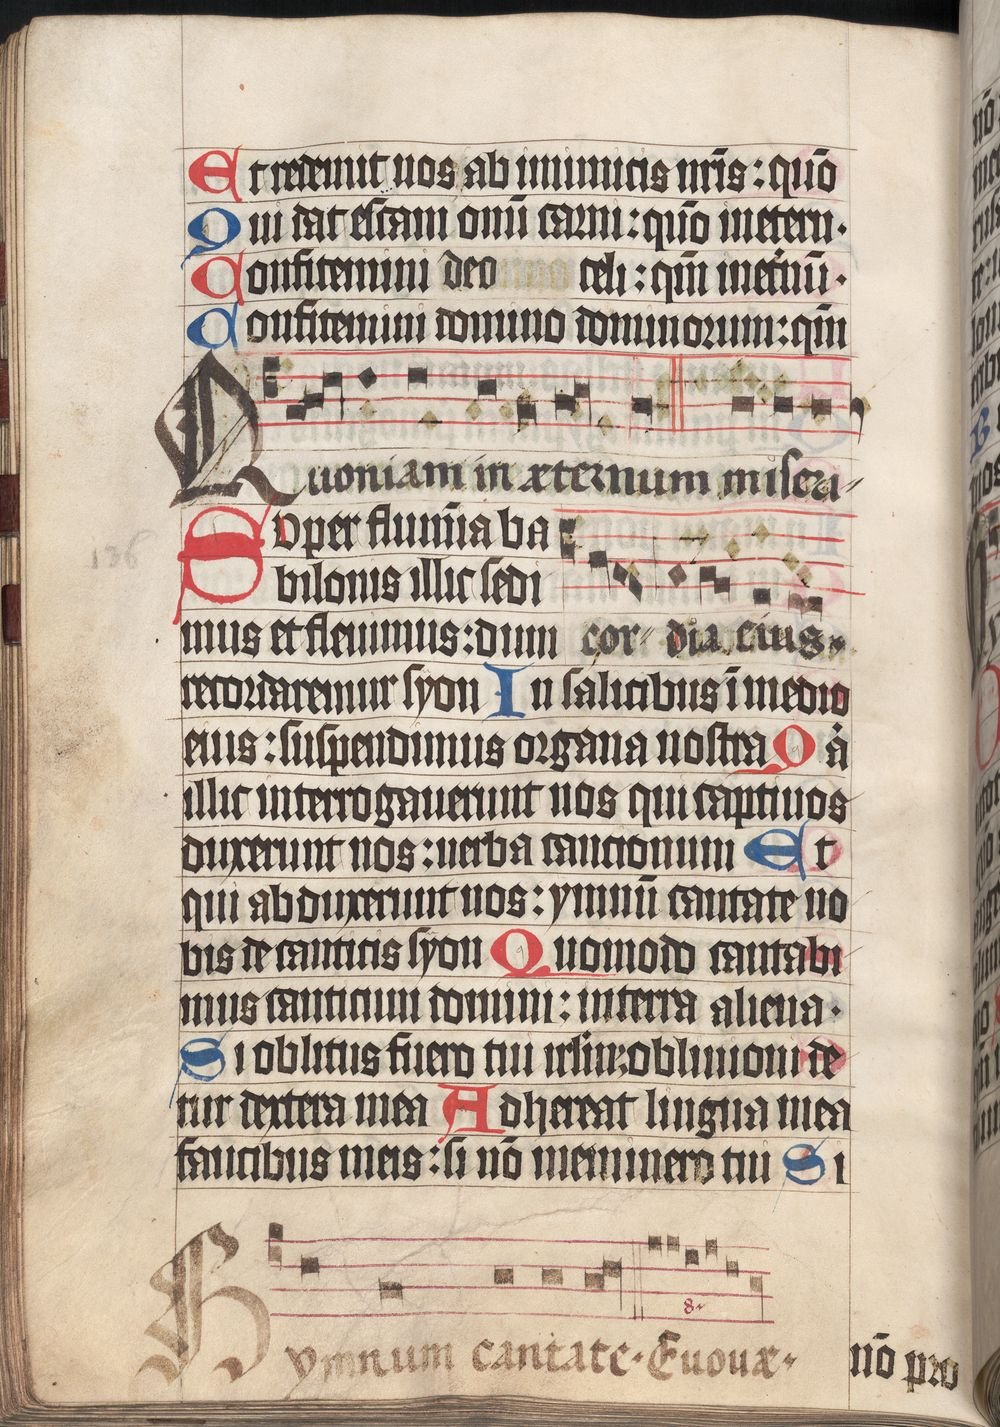 Et redemit nos ab inimicis nr̄is : quō
Qui dat escam om̄i carni : quō in etern·
Confitemini deo celi : qm̄ in et'nū·
Confitemini domino dominorum : qm̄
Quoniam in æternum miseri-
Super flumīa ba
bilonis illic sedi
mus et fleuimus : dum
cor- dia eius·
recordaremur syon In salicibus ī medio
eius : suspendimus organa nostra Qā
illic interrogauerunt nos qui captiuos
duxerunt nos : uerba cancionum Et
qui abduxerunt nos : ymnū cantate no
bis de canticis syon Quomodo cantabi
mus canticum domini : in terra aliena·
Si oblitus fuero tui irl̄m : obliuioni de
tur dextera mea Adhereat lingua mea
faucibus meis : si nō meminero tui Si
136
8·
Hymnum cantate· Euouæ·
nō pro